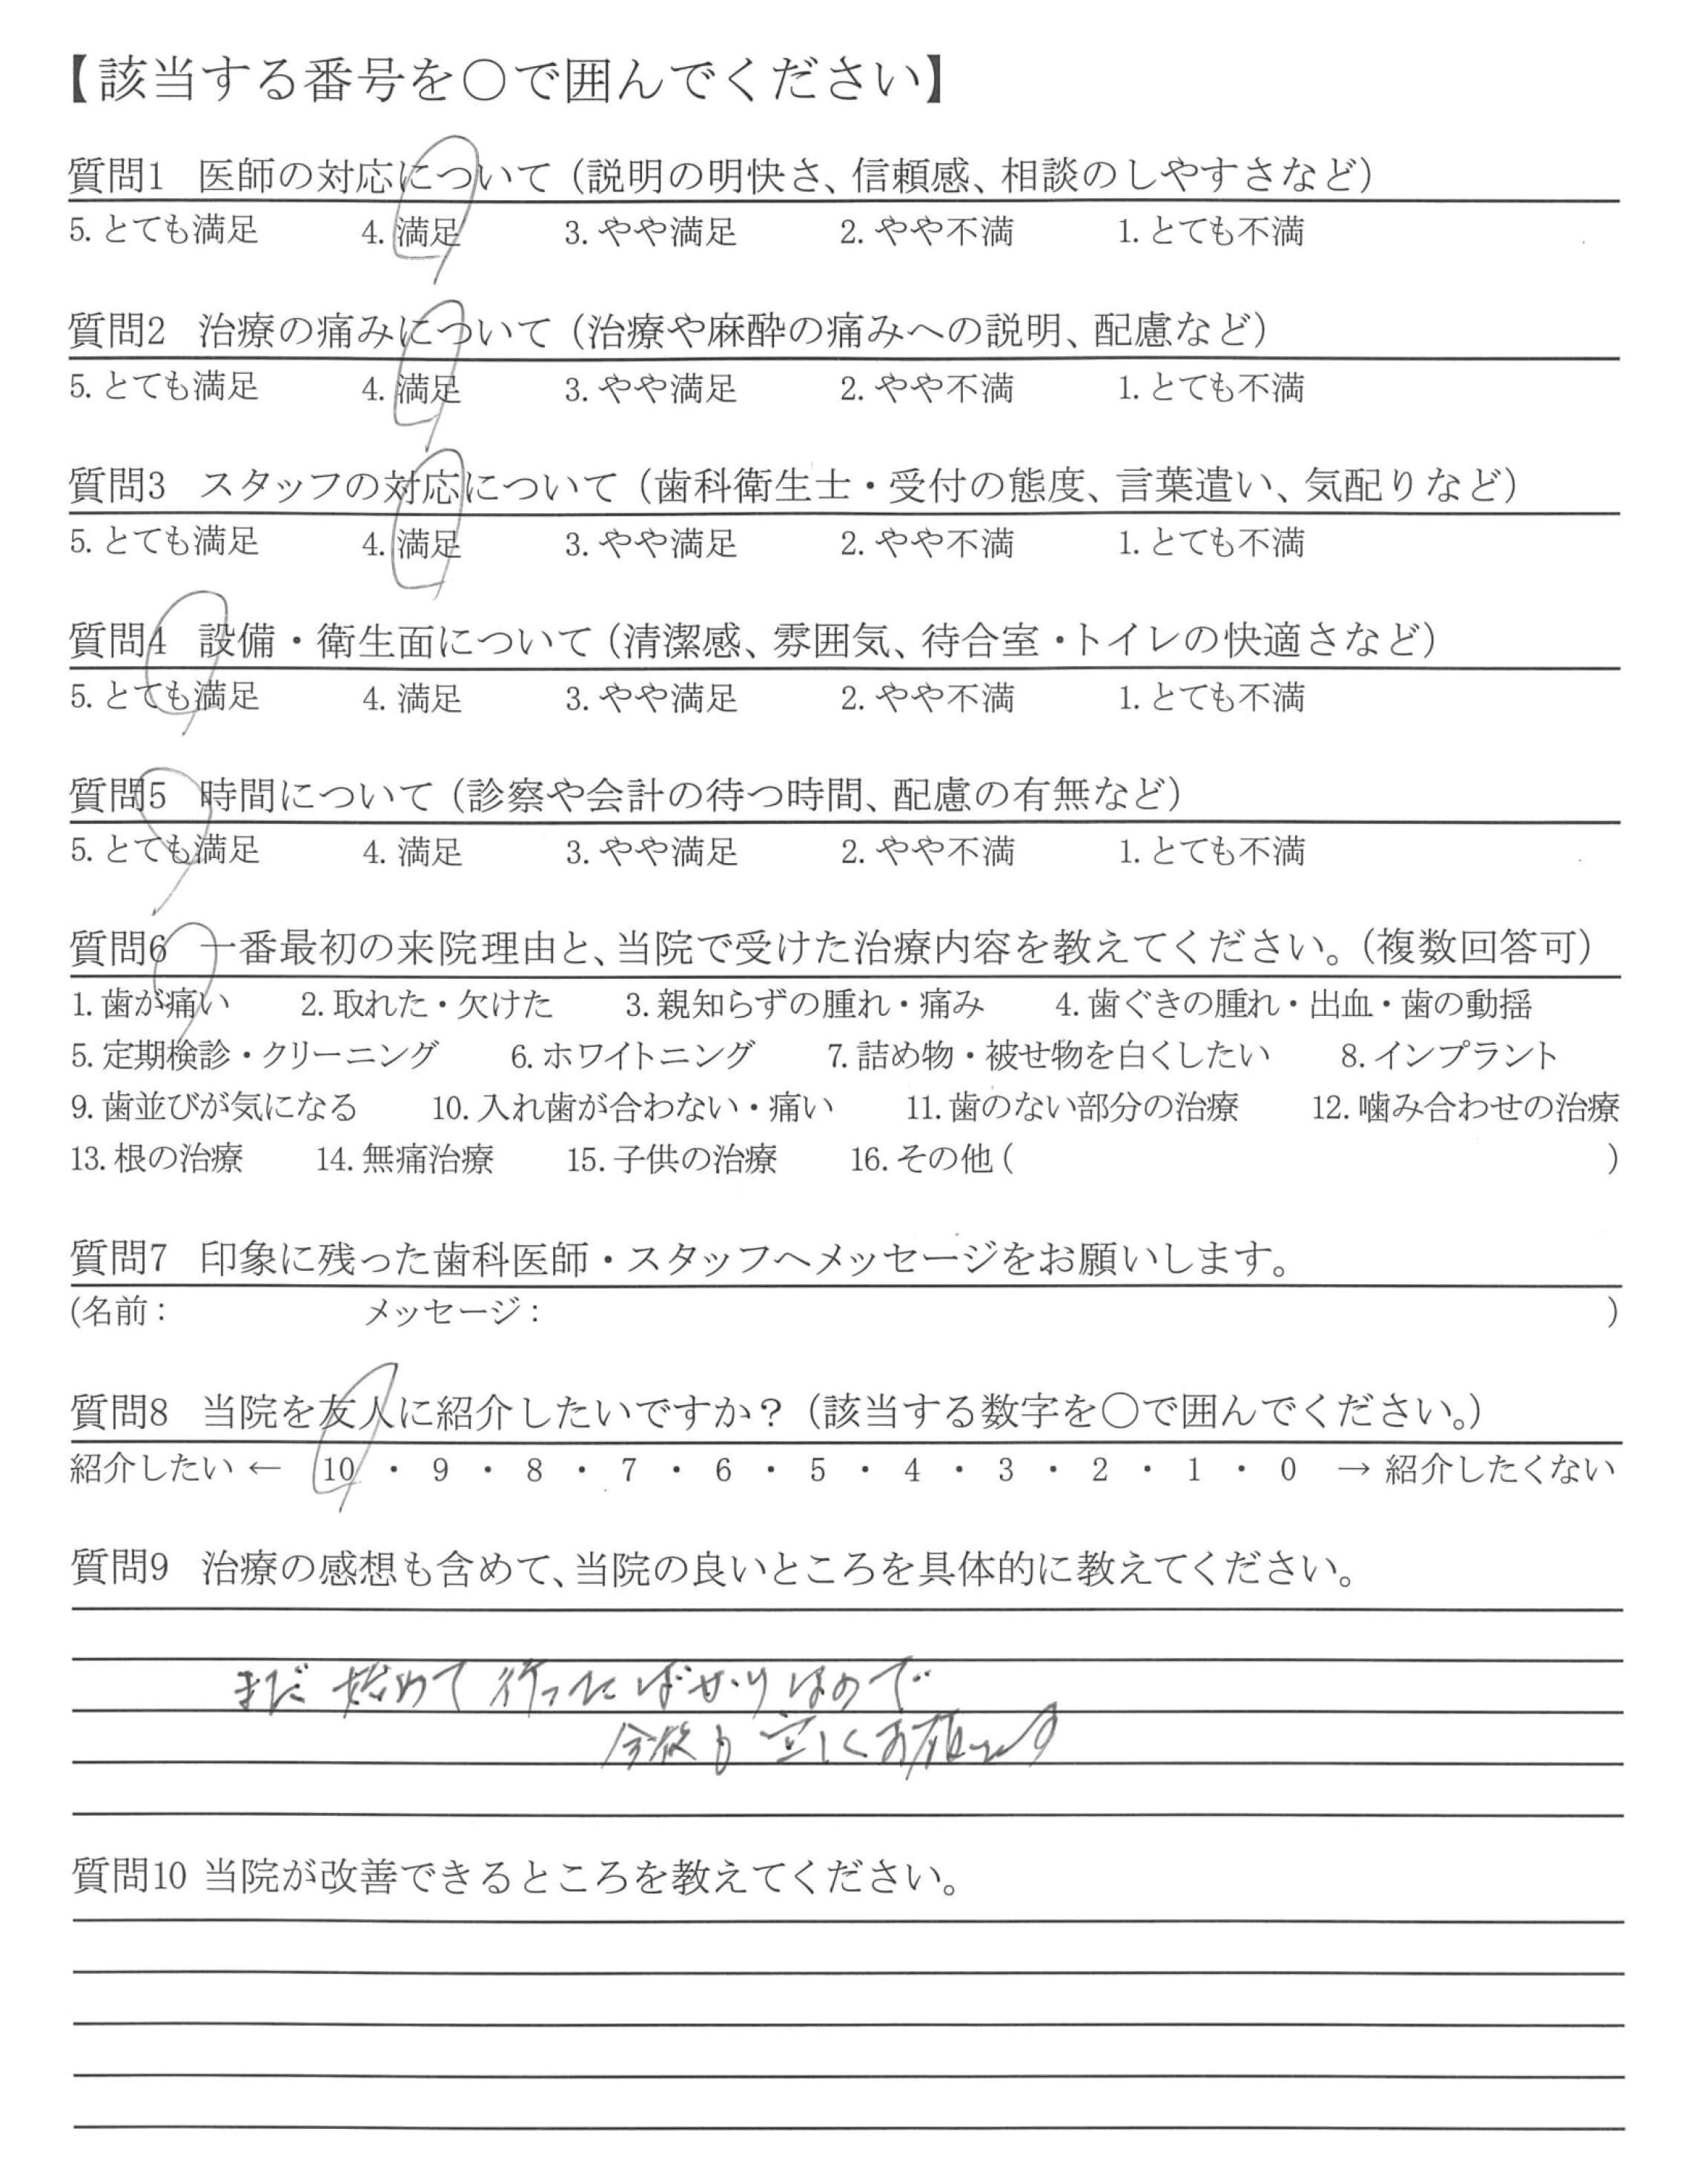 【該当する番号を○で囲んでください】
質問1 医師の対応について（説明の明快さ、信頼感、相談のしやすさなど）
5. とても満足 4. 満足 3. やや満足 2. やや不満 1. とても不満
質問2 治療の痛みについて（治療や麻酔の痛みへの説明、配慮など）
5. とても満足 4. 満足 3. やや満足 2. やや不満 1. とても不満
質問3 スタッフの対応について（歯科衛生士・受付の態度、言葉遣い、気配りなど）
5. とても満足 4. 満足 3. やや満足 2. やや不満 1. とても不満
質問4 設備・衛生面について（清潔感、雰囲気、待合室・トイレの快適さなど）
5. とても満足 4. 満足 3. やや満足 2. やや不満 1. とても不満
質問5 時間について（診察や会計の待つ時間、配慮の有無など）
5. とても満足 4. 満足 3. やや満足 2. やや不満 1. とても不満
質問6 一番最初の来院理由と、当院で受けた治療内容を教えてください。（複数回答可）
1. 歯が痛い 2. 取れた・欠けた 3. 親知らずの腫れ・痛み 4. 歯ぐきの腫れ・出血・歯の動揺
5. 定期検診・クリーニング 6. ホワイトニング 7. 詰め物・被せ物を白くしたい 8. インプラント
9. 歯並びが気になる 10. 入れ歯が合わない・痛い 11. 歯のない部分の治療 12. 噛み合わせの治療
13. 根の治療 14. 無痛治療 15. 子供の治療 16. その他（ ）
質問7 印象に残った歯科医師・スタッフへメッセージをお願いします。
（名前： メッセージ： ）
質問8 当院を友人に紹介したいですか？（該当する数字を○で囲んでください。）
紹介したい ← 10 ・ 9 ・ 8 ・ 7 ・ 6 ・ 5 ・ 4 ・ 3 ・ 2 ・ 1 ・ 0 → 紹介したくない
質問9 治療の感想も含めて、当院の良いところを具体的に教えてください。
まだ 始めて 行ったばかりなので
今後も 宜しくお願いします
質問10 当院が改善できるところを教えてください。